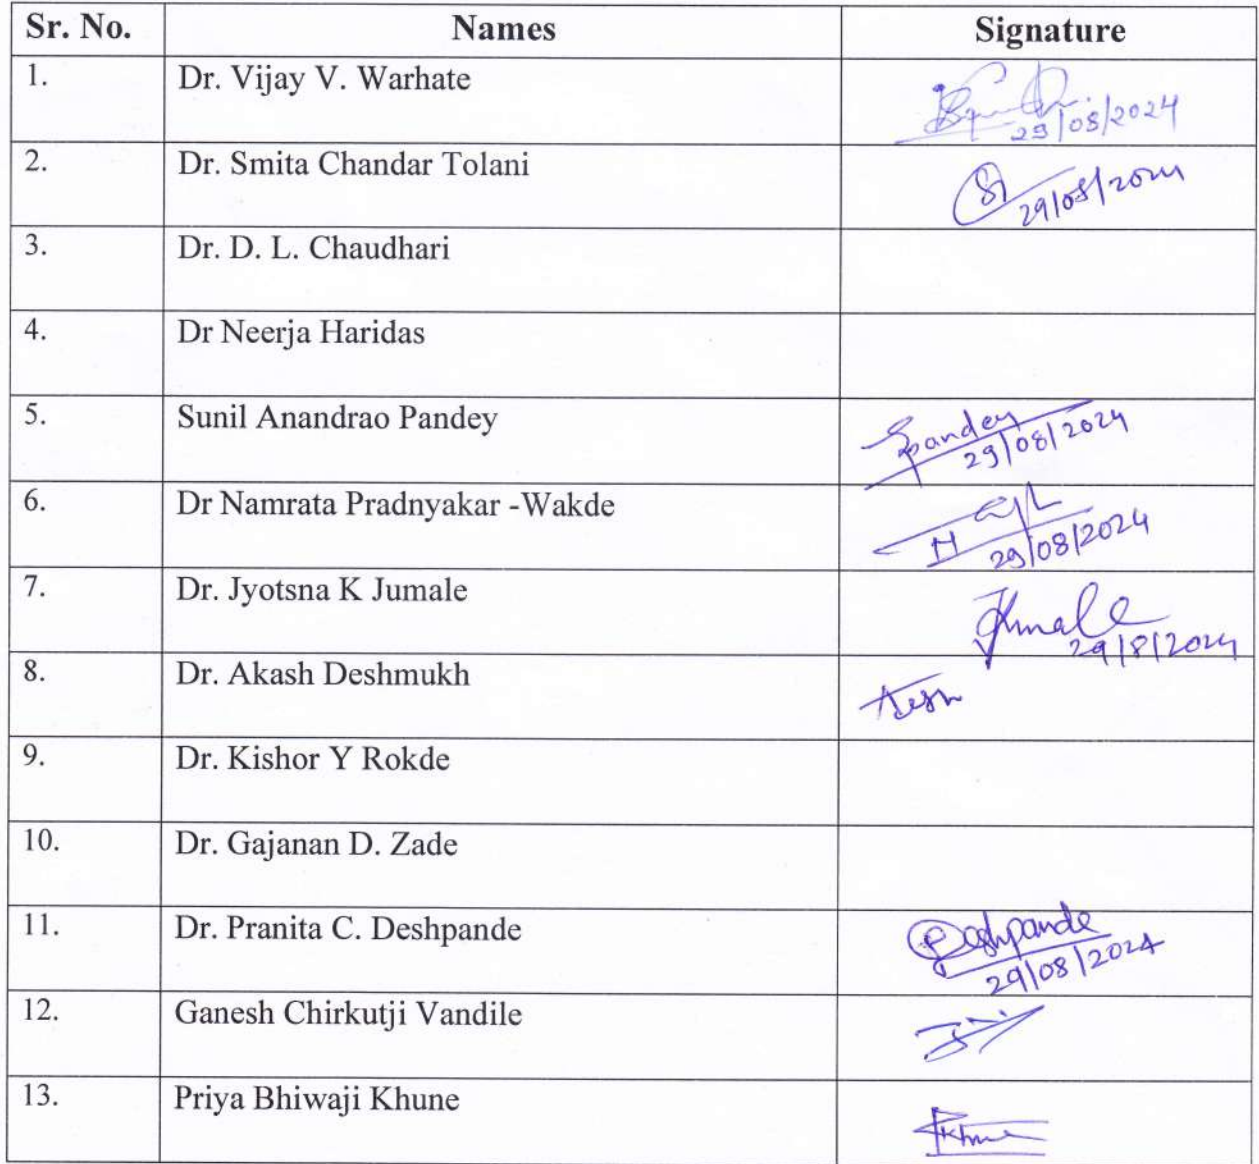 Sr. No. Names Signature
1. Dr. Vijay V. Warhate
29/08/2024
2. Dr. Smita Chandar Tolani
29/08/2024
3. Dr. D. L. Chaudhari
4. Dr Neerja Haridas
5. Sunil Anandrao Pandey Spandey
29/08/2024
6. Dr Namrata Pradnyakar -Wakde
29/08/2024
7. Dr. Jyotsna K Jumale
29/8/2024
8. Dr. Akash Deshmukh
9. Dr. Kishor Y Rokde
10. Dr. Gajanan D. Zade
11. Dr. Pranita C. Deshpande Deshpande
29/08/2024
12. Ganesh Chirkutji Vandile
13. Priya Bhiwaji Khune